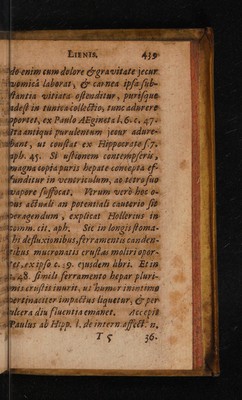 LIENIS. 439
do enim cum dolore & gravitate jecur
vomica laborat, & carnea ipsa sub-
stantia vitiata ostenditur, purisque
adest in tunica collectio, tunc adurere
oportet, ex Paulo AEgineta l. 6. c. 47.
Ita antiqui purulentum jecur adure-
bant, ut constat ex Hippocrate s 7.
aph. 45. Si ustionem contempseris,
magna copia puris hepate concepta ef-
funditur in ventriculum, ac tetro suo
vapore suffocat. Utrum verò hoc o-
pus actuali an potentiali cauterio sit
peragendum, explicat Hollerius in
comm. cit. aph. Sic in longis stoma-
chi defluxionibus, ferramentis canden-
tibus mucronatis crustas moliri opor-
tet, ex ipso c. 9. ejusdem libri. Et in
c. 48. simili ferramento hepar pluri-
mis crustis inurit, ut humor in intimo
pertinaciter impactus liquetur, & per
ulcera diu fluentia emanet. Accepit
Paulus ab Hipp. l. de intern. affect. n.
T 5 36.